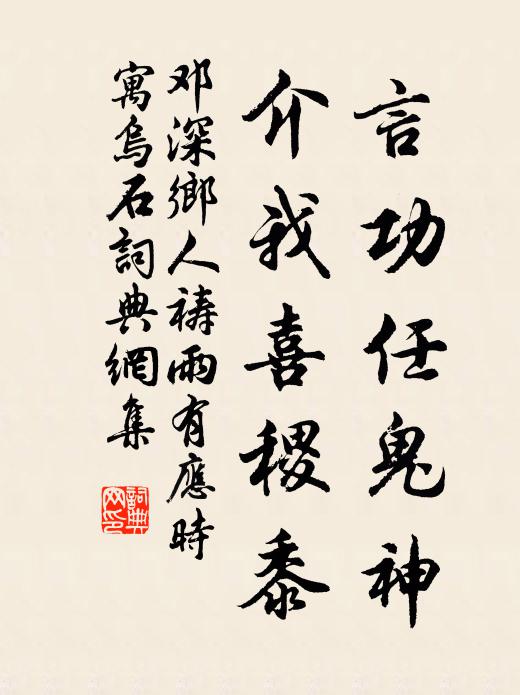 言功任鬼神
介我喜稷黍
邓深鄉人祷雨有應時
寓烏石詞典網集
詞典网印